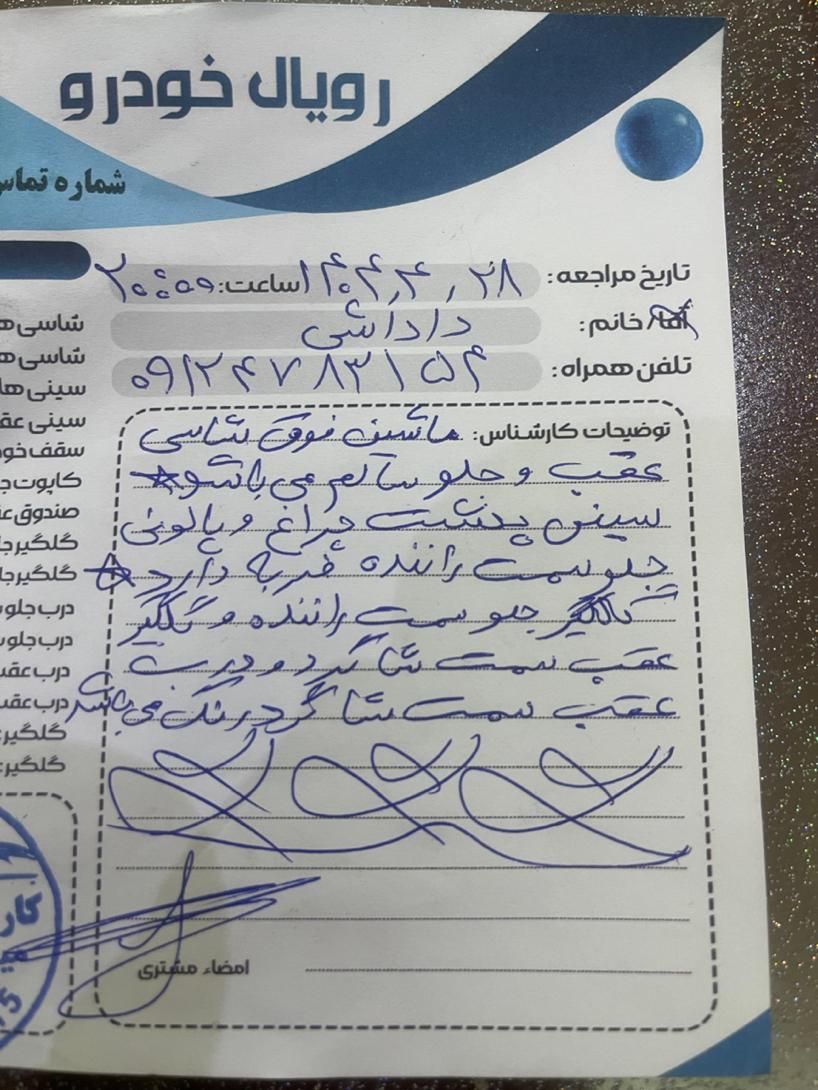 رویال خودرو
شماره تماس
تاریخ مراجعه: ۱۴۰۴,۴,۲۸ ساعت: ۲۰:۵۹
آقا/خانم: داداشی
تلفن همراه: ۰۹۱۲۴۷۸۳۱۵۴
توضیحات کارشناس: ماشین فوق شاسی
عقب و جلو سالم می باشد
سینی پشت چراغ و پالونی
جلو سمت راننده ضربه دارد
گلگیر جلو سمت راننده و گلگیر
عقب سمت شاگرد و درب
عقب سمت شاگرد رنگ می باشد
امضاء مشتری
شاسی
شاسی
سینی ها
سینی عق
سقف خو
کاپوت ج
صندوق ع
گلگیر جا
گلگیر جا
درب جلو
درب جلو
درب عقب
درب عقب
گلگیر
گلگیر
کار